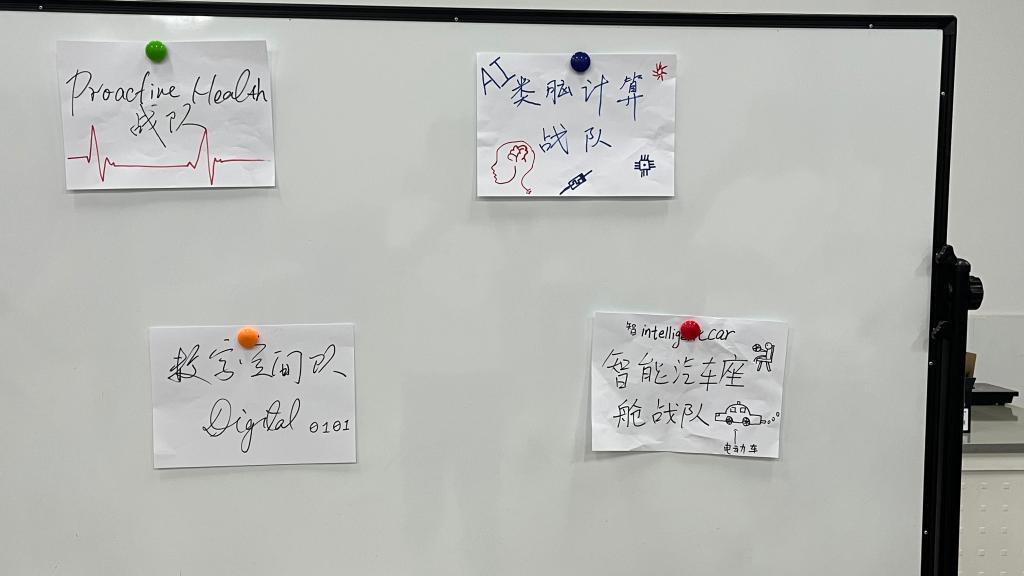 Proactive Health
战队
AI
类脑计算
战队
数字空间队
Digital 0101
智 intelligent car
智能汽车座
舱战队
电动车